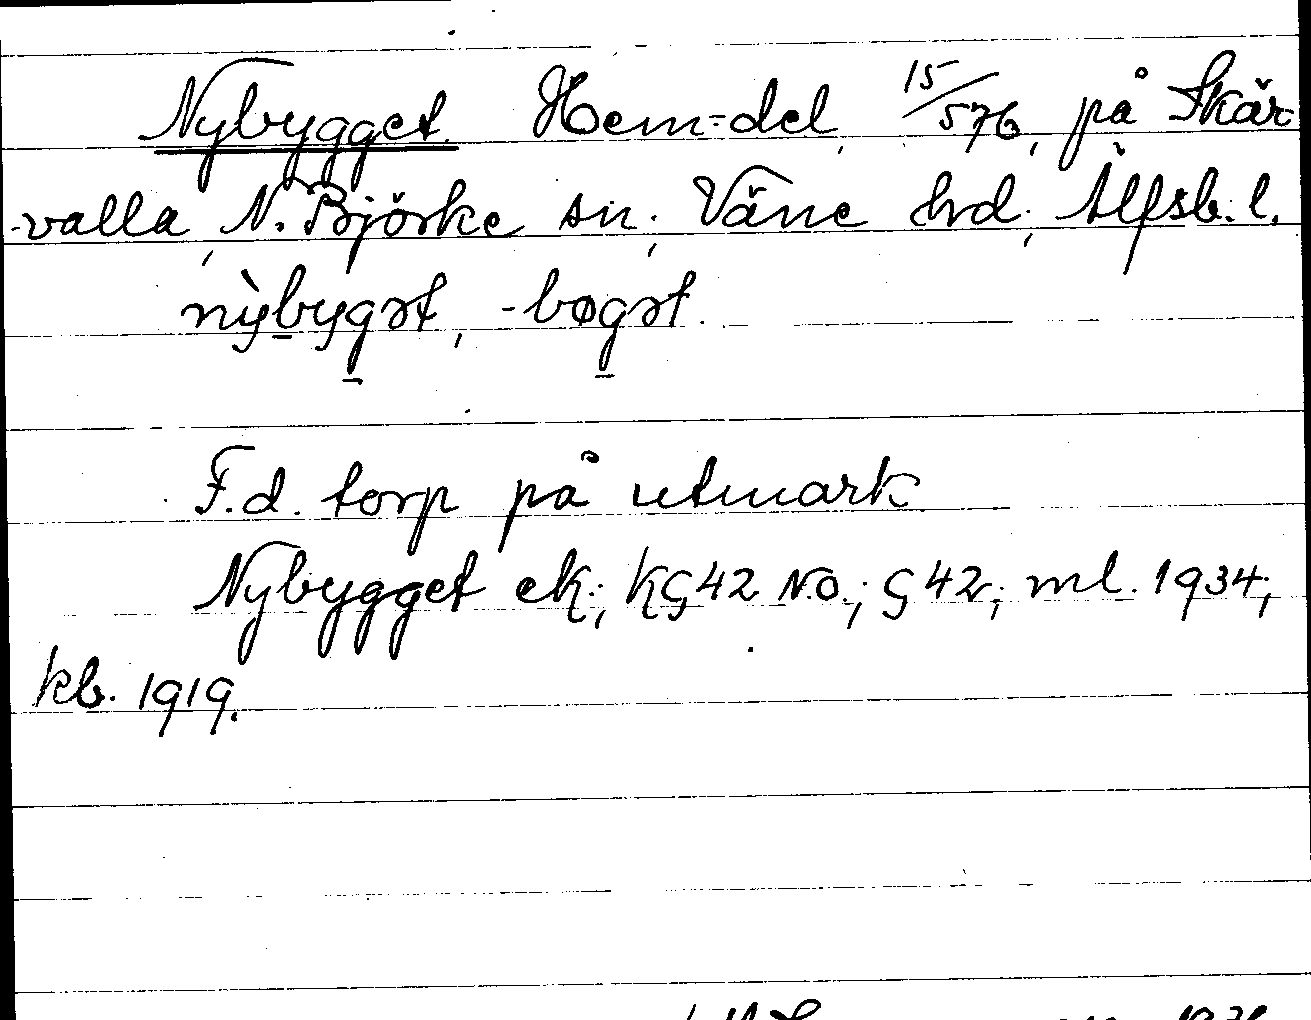 Nybygget. Hem=del, 15/576, på Skär
-valla, N. Björke sn; Väne hrd; Älfsb. l.
nỳbygət, -bøgət.
F.d. torp på utmark
Nybygget ek; KG42 N.O.; G 42; ml. 1934;
kb. 1919.